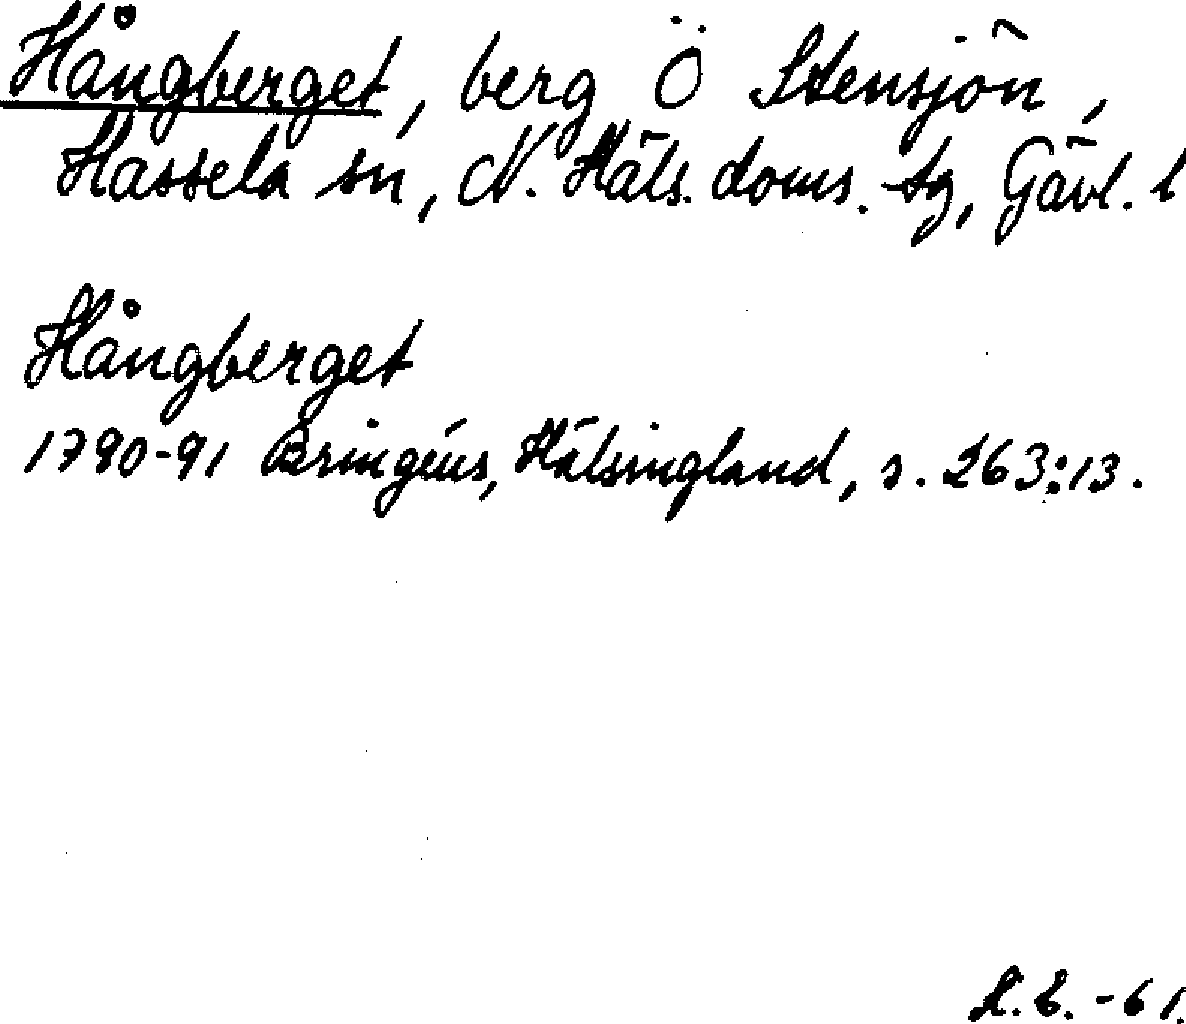 Hångberget, berg Ö Stensjön,
Hassela sn, N. Häls. doms. tg, Gävl. l
Hångberget
1790-91 Bringéus, Hälsingland, s. 263:13.